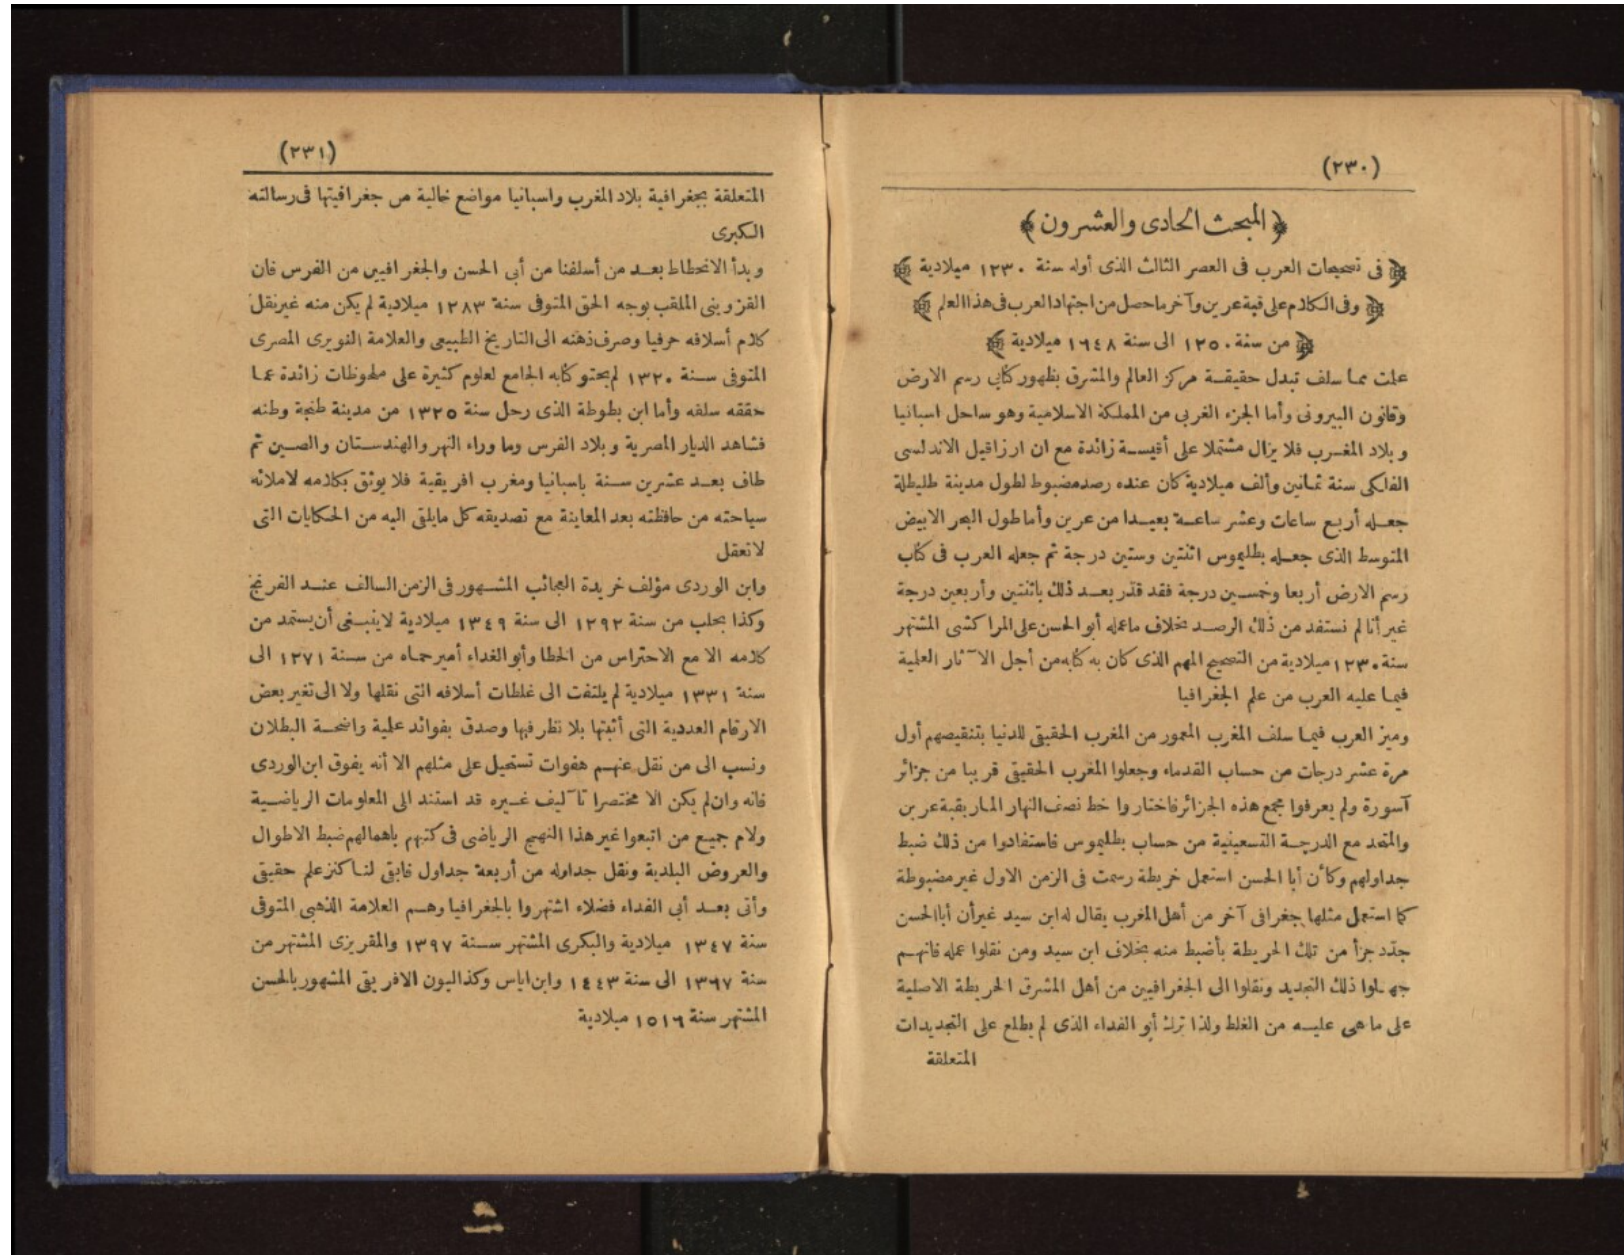 (٢٣٠)
﴿المبحث الحادى والعشرون﴾
﴿فى تصحيحات العرب فى العصر الثالث الذى أوله سنة ١٢٣٠ ميلادية﴾
﴿وفى الكلام على قبة عرين وآخر ما حصل من اجتهاد العرب فى هذا العلم﴾
﴿من سنة ١٢٥٠ الى سنة ١٦٤٨ ميلادية﴾
علمت مما سلف تبدل حقيقة مركز العالم والمشرق بظهور كتابى رسم الارض
وقانون البيرونى وأما الجزء الغربى من المملكة الاسلامية وهو ساحل اسبانيا
وبلاد المغرب فلا يزال مشتملا على أقيسة زائدة مع ان ارزاقيل الاندلسى
الفلكى سنة ثمانين وألف ميلادية كان عنده رصد مضبوط لطول مدينة طليطلة
جعله أربع ساعات وعشر ساعة بعيدا من عرين وأما طول البحر الابيض
المتوسط الذى جعله بطليموس اثنتين وستين درجة ثم جعله العرب فى كتاب
رسم الارض أربعا وخمسين درجة فقد قدّر بعد ذلك باثنتين وأربعين درجة
غير أنا لم نستفد من ذلك الرصد بخلاف ما عمله أبو الحسن على المراكشى المشتهر
سنة ١٢٣٠ ميلادية من التصحيح المهم الذى كان به كتابه من أجل الآثار العلمية
فيما عليه العرب من علم الجغرافيا
وميز العرب فيما سلف المغرب المعمور من المغرب الحقيقى للدنيا بتنقيصهم أول
مرة عشر درجات من حساب القدماء وجعلوا المغرب الحقيقى قريبا من جزائر
آسورة ولم يعرفوا مجمع هذه الجزائر فاختاروا خط نصف النهار المار بقبة عرين
والمتحد مع الدرجة التسعينية من حساب بطليموس فاستفادوا من ذلك ضبط
جداولهم وكأن أبا الحسن استعمل خريطة رسمت فى الزمن الاول غير مضبوطة
كما استعمل مثلها جغرافى آخر من أهل المغرب يقال له ابن سيد غير أن أبا الحسن
جدّد جزأ من تلك الخريطة بأضبط منه بخلاف ابن سيد ومن نقلوا عمله فانهم
جهلوا ذلك التجديد ونقلوا الى الجغرافيين من أهل المشرق الخريطة الاصلية
على ما هى عليه من الغلط ولذا ترك أبو الفداء الذى لم يطلع على التجديدات
المتعلقة
(٢٣١)
المتعلقة بجغرافية بلاد المغرب واسبانيا مواضع خالية من جغرافيتها فى رسالته
الكبرى
وبدأ الانحطاط بعد من أسلفنا من أبى الحسن والجغرافيين من الفرس فان
القزوينى الملقب بوجه الحق المتوفى سنة ١٢٨٣ ميلادية لم يكن منه غير نقل
كلام أسلافه حرفيا وصرف ذهنه الى التاريخ الطبيعى والعلامة النويرى المصرى
المتوفى سنة ١٣٢٠ لم يحتو كتابه الجامع لعلوم كثيرة على ملحوظات زائدة عما
حققه سلفه وأما ابن بطوطة الذى رحل سنة ١٣٢٥ من مدينة طنجة وطنه
فشاهد الديار المصرية وبلاد الفرس وما وراء النهر والهندستان والصين ثم
طاف بعد عشرين سنة باسبانيا ومغرب افريقية فلا يوثق بكلامه لاملائه
سياحته من حافظته بعد المعاينة مع تصديقه كل ما يلقى اليه من الحكايات التى
لا تعقل
وابن الوردى مؤلف خريدة العجائب المشهور فى الزمن السالف عند الفرنج
وكذا بحلب من سنة ١٢٩٢ الى سنة ١٣٤٩ ميلادية لا ينبغى أن يستمد من
كلامه الا مع الاحتراس من الخطا وأبو الفداء أمير حماه من سنة ١٢٧١ الى
سنة ١٣٣١ ميلادية لم يلتفت الى غلطات أسلافه التى نقلها ولا الى تغير بعض
الارقام العددية التى أثبتها بلا نظر فيها وصدق بفوائد علمية واضحة البطلان
ونسب الى من نقل عنهم هفوات تستحيل على مثلهم الا أنه يفوق ابن الوردى
فانه وان لم يكن الا مختصرا تآليف غيره قد استند الى المعلومات الرياضية
ولام جميع من اتبعوا غير هذا النهج الرياضى فى كتبهم باهمالهم ضبط الاطوال
والعروض البلدية ونقل جداوله من أربعة جداول فابقى لنا كنز علم حقيقى
وأتى بعد أبى الفداء فضلاء اشتهروا بالجغرافيا وهم العلامة الذهبى المتوفى
سنة ١٣٤٧ ميلادية والبكرى المشتهر سنة ١٣٩٧ والمقريزى المشتهر من
سنة ١٣٦٧ الى سنة ١٤٤٣ وابن اياس وكذا ليون الافريقى المشهور بالحسن
المشتهر سنة ١٥١٦ ميلادية